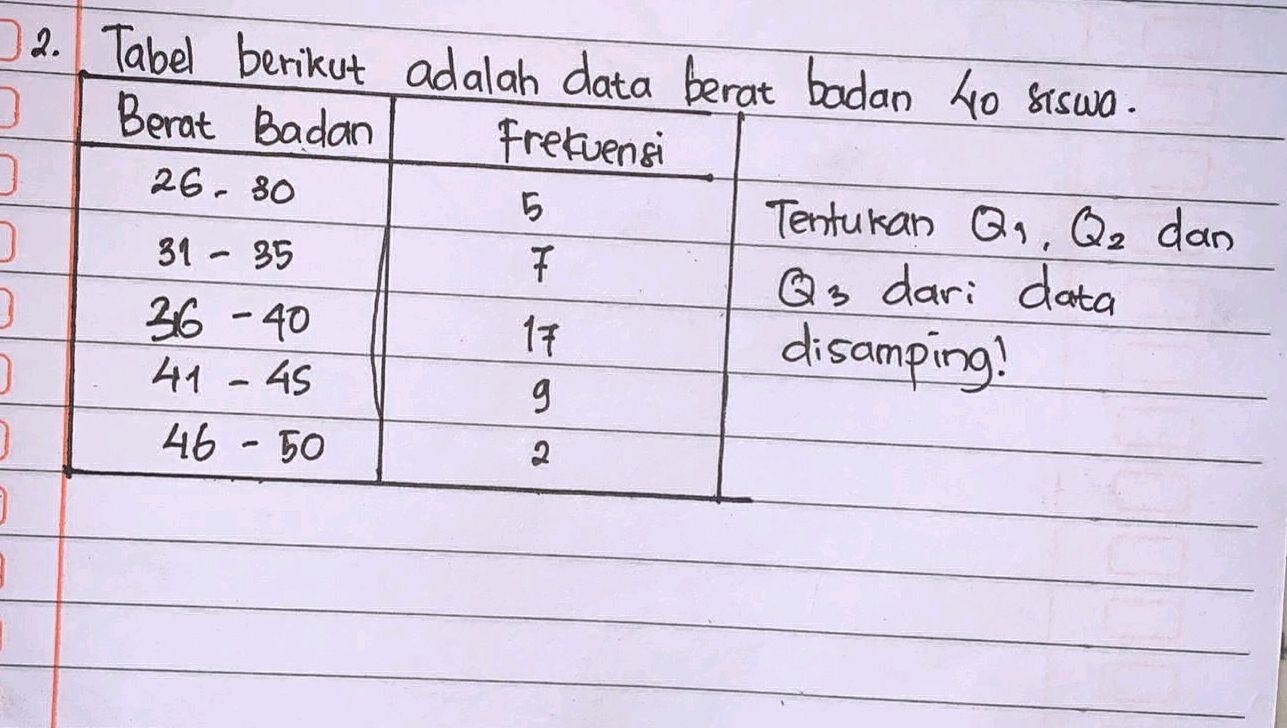 2. Tabel berikut adalah data berat badan 40 siswa.
Berat Badan Frekuensi
26 - 30 5
31 - 35 7
36 - 40 17
41 - 45 9
46 - 50 2
Tentukan Q1, Q2 dan
Q3 dari data
disamping!